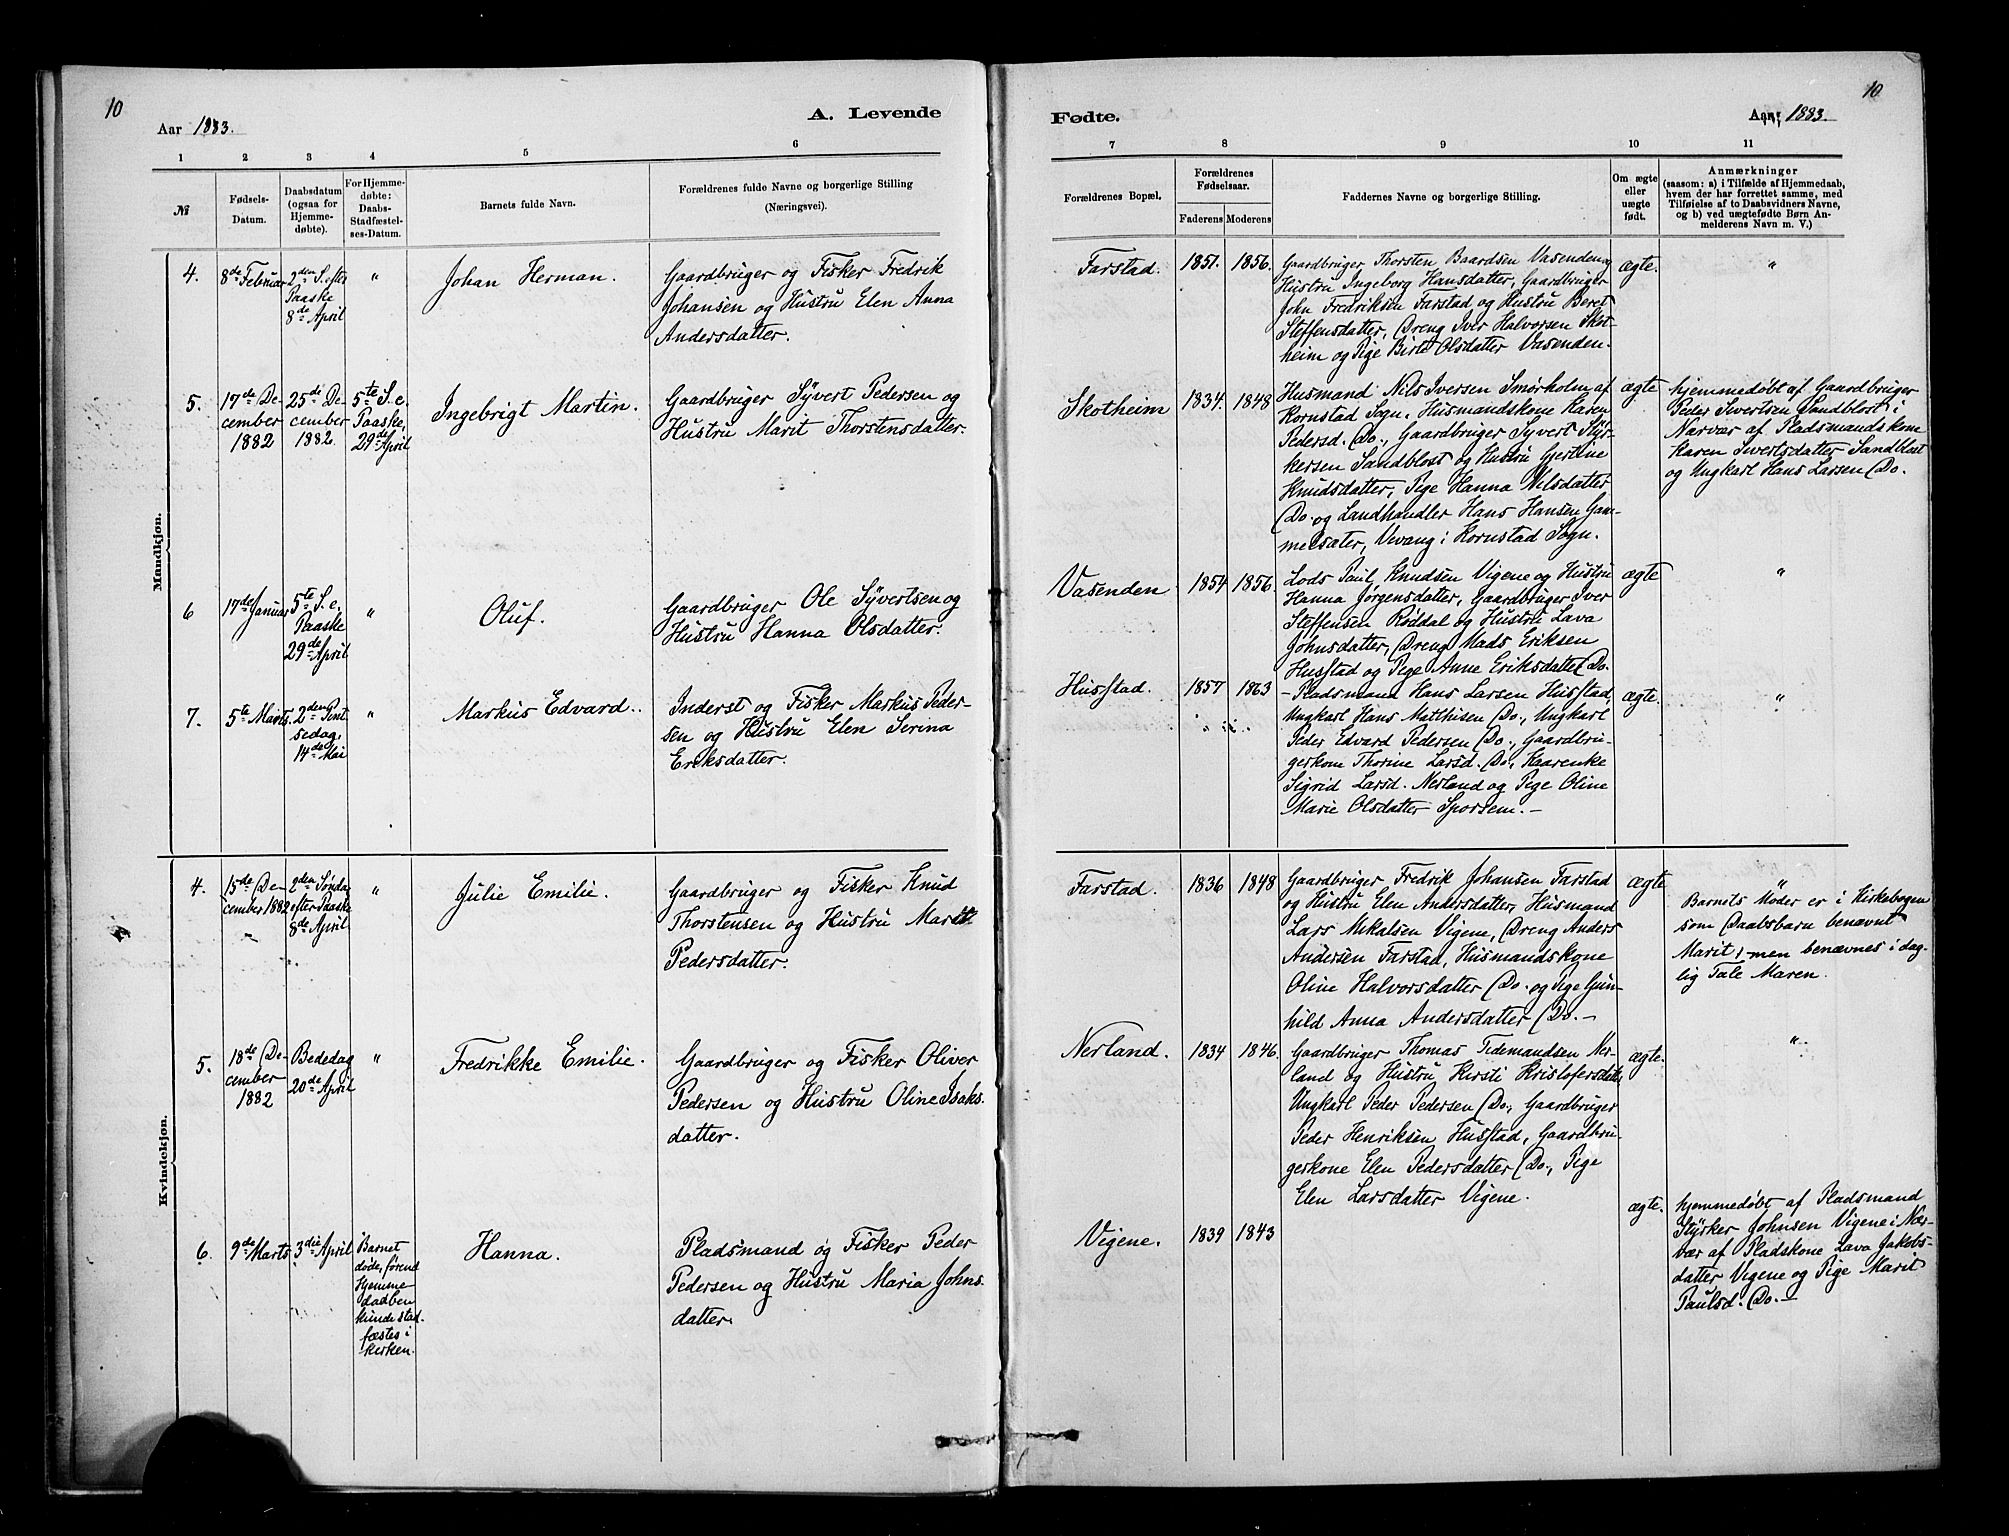 10
Aar 1883.
A. Levende
1
2
3
4
5
6
№
Fødsels-
Datum.
Daabsdatum
(ogsaa for
Hjemme-
døbte).
For Hjemme-
døbte:
Daabs-
Stadfæstel-
ses-Datum.
Barnets fulde Navn.
Forældrenes fulde Navne og borgerlige Stilling
(Næringsvei).
Mandkjøn.
4.
8de Februar
2den S. efter
Paaske
8de April
"
Johan Herman.
Gaardbruger og Fisker Fredrik
Johansen og Hustru Elen Anna
Andersdatter.
5.
17de De-
cember
1882
25de De-
cember
1882.
5te S. e.
Paaske,
29de April
Ingebrigt Martin.
Gaardbruger Syvert Pedersen og
Hustru Marit Thorstensdatter.
6
17de Januar
5te S. e.
Paaske
29de April
"
Oluf.
Gaardbruger Ole Syvertsen og
Hustru Hanna Olsdatter.
7.
5te Marts.
2den Pint
sedag,
14de Mai
"
Markus Edvard.
Inderst og Fisker Markus Peder-
sen og Hustru Elen Serina
Eriksdatter.
Kvindekjøn.
4.
15de De-
cember 1882
2den Søndag
efter Paaske
8de April
"
Julie Emilie.
Gaardbruger og Fisker Knud
Thorstensen og Hustru Marit
Pedersdatter.
5.
18de De-
cember
1882
Bededag
20de April
"
Fredrikke Emilie.
Gaardbruger og Fisker Oliver
Pedersen og Hustru Oline Isaks-
datter.
6.
9de Marts
3die April
Barnet
døde, førend
Hjemme
daaben
kunde stad-
fæstes i
kirken.
Hanna.
Pladsmand og Fisker Peder
Pedersen og Hustru Maria Johns-
datter.
10
Fødte.
Aar 1883.
7
8
9
10
11
Forældrenes Bopæl.
Forældrenes
Fødselsaar.
Faderens
Moderens
Faddernes Navne og borgerlige Stilling.
Om ægte
eller
uægte
født.
Anmærkninger
(saasom: a) i Tilfælde af Hjemmedaab,
hvem der har forrettet samme, med
Tilføielse af to Daabsvidners Navne,
og b) ved uægtefødte Børn An-
melderens Navn m. V.)
Farstad.
1851.
1856.
Gaardbruger Thorsten Baardsen Vasenden og
Hustru Ingeborg Hansdatter, Gaardbruger
John Fredriksen Farstad og Hustru Beret
Steffensdatter, Dreng Iver Halvorsen Skot-
heim og Pige Birte Olsdatter Vasenden.
ægte.
"
Skotheim
1834.
1848
Husmand Nils Iversen Smørholm af
Kornstad Sogn, Husmandskone Karen
Pedersd. Do., Gaardbruger Syvert Styr-
kersen Sandblost og Hustru Gertine
Knudsdatter, Pige Hanna Nilsdatter
Do. og Landhandler Hans Hansen Gam-
melsæter, Vevang i Kornstad Sogn.
ægte
hjemmedøbt af Gaardbruger
Peder Sivertsen Sandblost i
Nærvær af Pladsmandskone
Karen Sivertsdatter Sandblost
og Ungkarl Hans Larsen Do.
Vasenden
1854
1856.
Lods Paul Knudsen Vigene og Hustru
Hanna Jørgensdatter, Gaardbruger Iver
Steffensen Røddal og Hustru Lava
Johnsdatter, Dreng Mads Eriksen
Husstad og Pige Anne Eriksdatter Do.
ægte
"
Husstad.
1857
1863
- Pladsmand Hans Larsen Husstad,
Ungkarl Hans Matthisen Do., Ungkarl
Peder Edvard Pedersen Do., Gaardbru-
gerkone Thorine Larsd. Do., Kaarenke
Sigrid Larsd. Nerland og Pige Oline
Marie Olsdatter Sporsem. -
ægte.
"
Farstad.
1836
1848
Gaardbruger Fredrik Johansen Farstad
og Hustru Elen Andersdatter, Husmand
Lars Mikalsen Vigene, Dreng Anders
Andersen Farstad, Husmandskone
Oline Halvorsdatter Do. og Pige Gun-
hild Anna Andersdatter Do. -
ægte
"
Barnets Moder er i Kirkebogen
som Daabsbarn benævnt
Marit, men benævnes i dag-
lig Tale Maren.
Nerland.
1834
1846.
Gaardbruger Thomas Tidemandsen Ner-
land og Hustru Kersti Kristofersdatter,
Ungkarl Peder Pedersen Do., Gaardbruger
Peder Henriksen Husstad, Gaardbru-
gerkone Elen Pedersdatter Do., Pige
Elen Larsdatter Vigene.
ægte.
"
Vigene.
1839
1843
ægte.
hjemmedøbt af Pladsmand
Styrker Johnsen Vigene i Nær-
vær af Pladskone Lava Jakobs-
datter Vigene og Pige Marit
Paulsd. Do. -